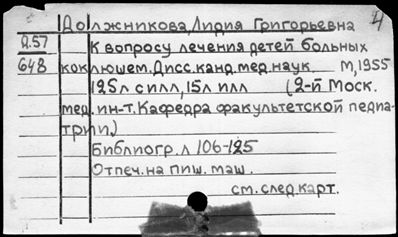 Должникова, Лидия Григорьевна 4
Д.57 К вопросу лечения детей больных
648 коклюшем. Дисс. канд. мед. наук М, 1955
125л с илл, 15л илл (2-й Моск.
мед. ин-т. Кафедра факультетской педиа-
трии)
Библиогр. л 106-125
Отпеч. на пиш. маш.
см. след. карт.